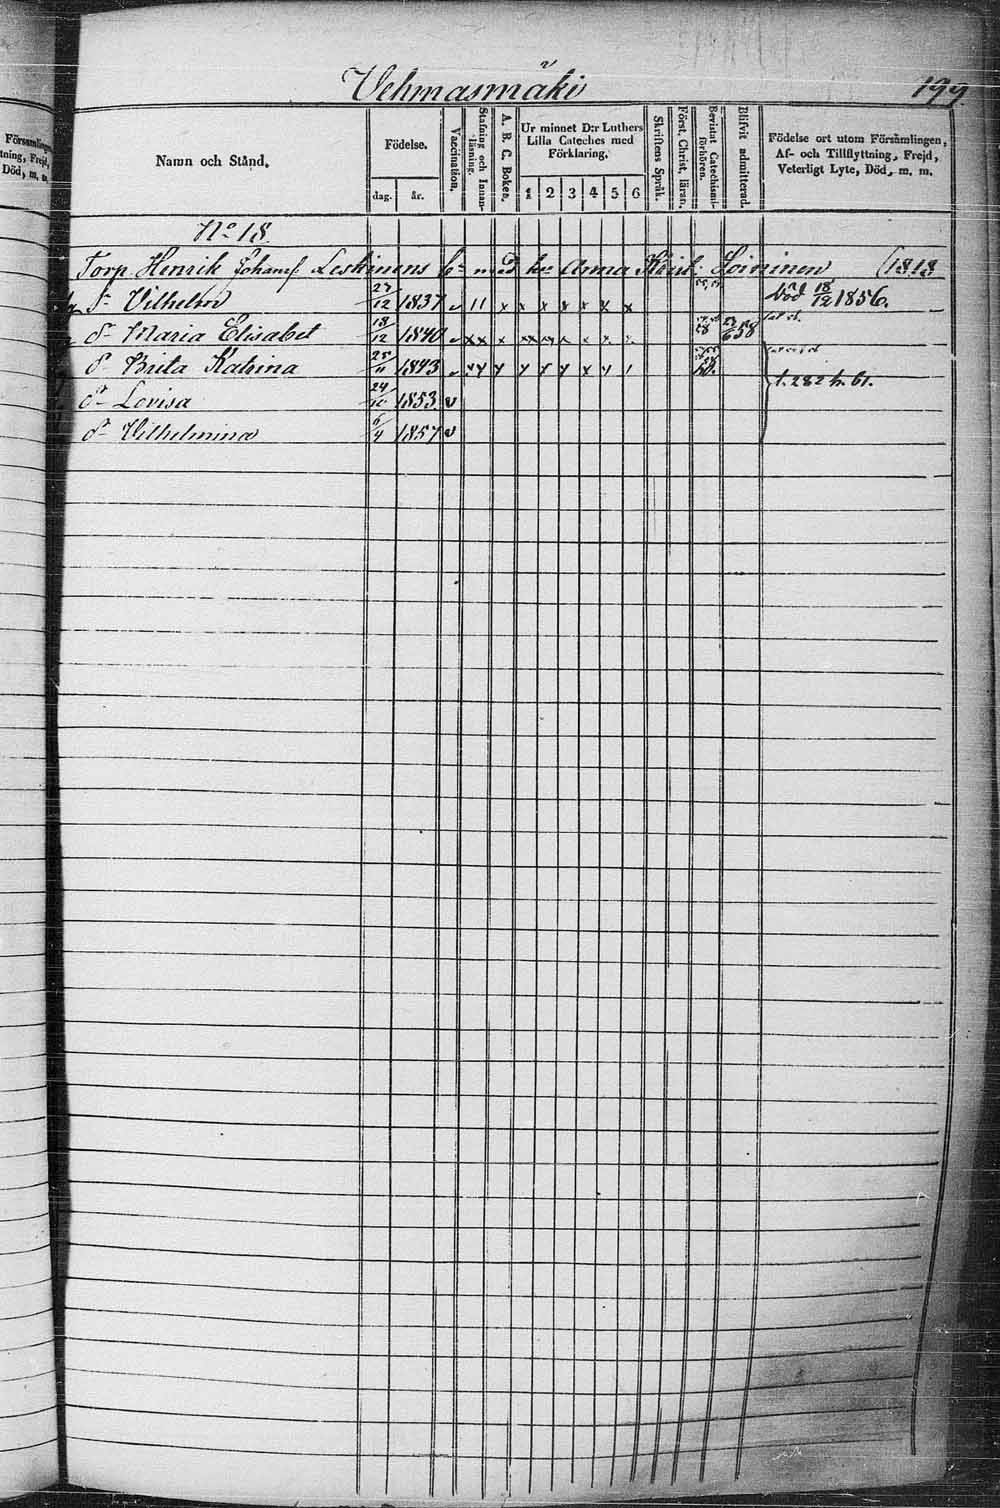 Vehmasmäki 199.
Församlingen,
tning, Frejd,
Död, m. m.
Namn och Stånd.
Födelse.
dag. år.
Vaccination.
Stafning och Innan-
läsning.
A. B. C. Boken.
Ur minnet D:r Luthers
Lilla Cateches med
Förklaring.
1 2 3 4 5 6
Skriftens Språk.
Först. Christ. läran.
Bevistat Catechismi-
förhören.
Blifvit admitterad.
Födelse ort utom Församlingen,
Af- och Tillflyttning, Frejd,
Veterligt Lyte, Död, m. m.
No 18.
Torp. Henrik Johans: Leskinens b:n med hu Anna Loininen (1818
Sn Vilhelm 27/12 1837 v 11 x x x x x x x Död 18/12 1856.
Dr Maria Elisabet 18/12 1840 v xx x xx x x x x 58 23/6 58
Dr Brita Katrina 25/11 1843 v
Dr Lovisa 24/10 1853. v
Dr Vilhelmina 6/4 1857 v
t. 282 h. 61.